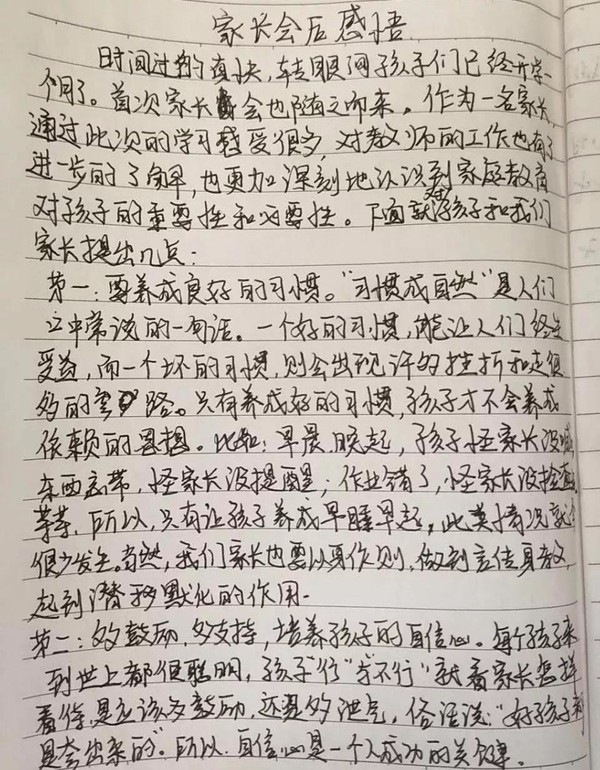 家长会后感悟
时间过的真快,转眼间孩子们已经开学一
个月了。首次家长会也随之而来。作为一名家长,
通过此次的学习感受很多,对教师的工作也有了
进一步的了解,也更加深刻地认识到家庭教育
对孩子的重要性和必要性。下面就对孩子和我们
家长提出几点:
第一:要养成良好的习惯。"习惯成自然"是人们
口中常说的一句话。一个好的习惯,能让人们终生
受益,而一个坏的习惯,则会出现许多挫折和走很
多的弯路。只有养成好的习惯,孩子才不会养成
依赖的思想。比如:早晨晚起,孩子怪家长没喊
东西忘带,怪家长没提醒;作业错了,怪家长没检查
等等,所以,只有让孩子养成早睡早起,此类情况就会
很少发生。当然,我们家长也要以身作则,做到言传身教,
起到潜移默化的作用.
第二:多鼓励,多支持,培养孩子的自信心。每个孩子来
到世上都很聪明,孩子"行"与"不行"就看家长怎样
看待,是应该多鼓励,还是多泄气,俗话说:"好孩子都
是夸出来的"。所以.自信心是一个人成功的关键。